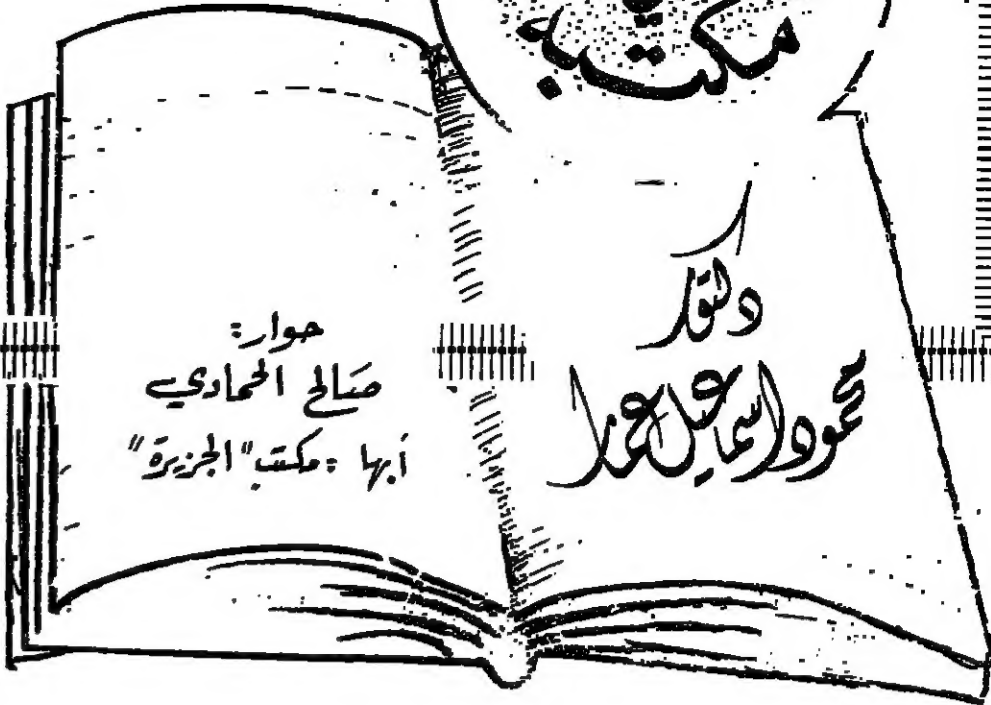 مكتبة
دكتور
محمود اسماعيل عمار
حوار:
صالح الحمادي
أبها : مكتب "الجزيرة"